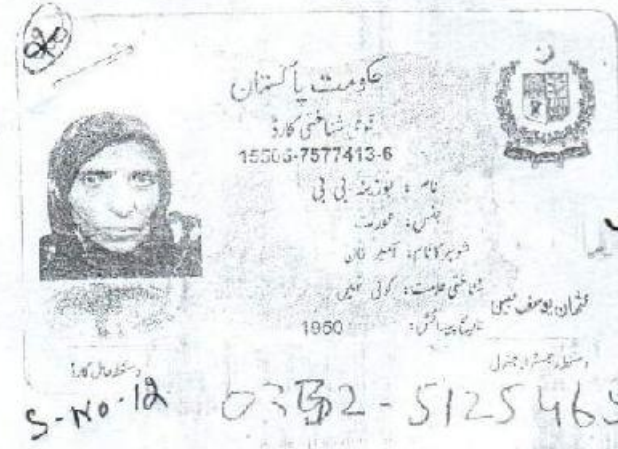 حکومت پاکستان
قومی شناختی کارڈ
15505-7577413-6
نام : بی بی
جنس: عورت
شوہر کا نام: امیر خان
شناختی علامت: کوئی نہیں
تاریخ پیدائش: 1950
دستخط حامل کارڈ
دستخط رجسٹرار جنرل
S-NO-12
5125465